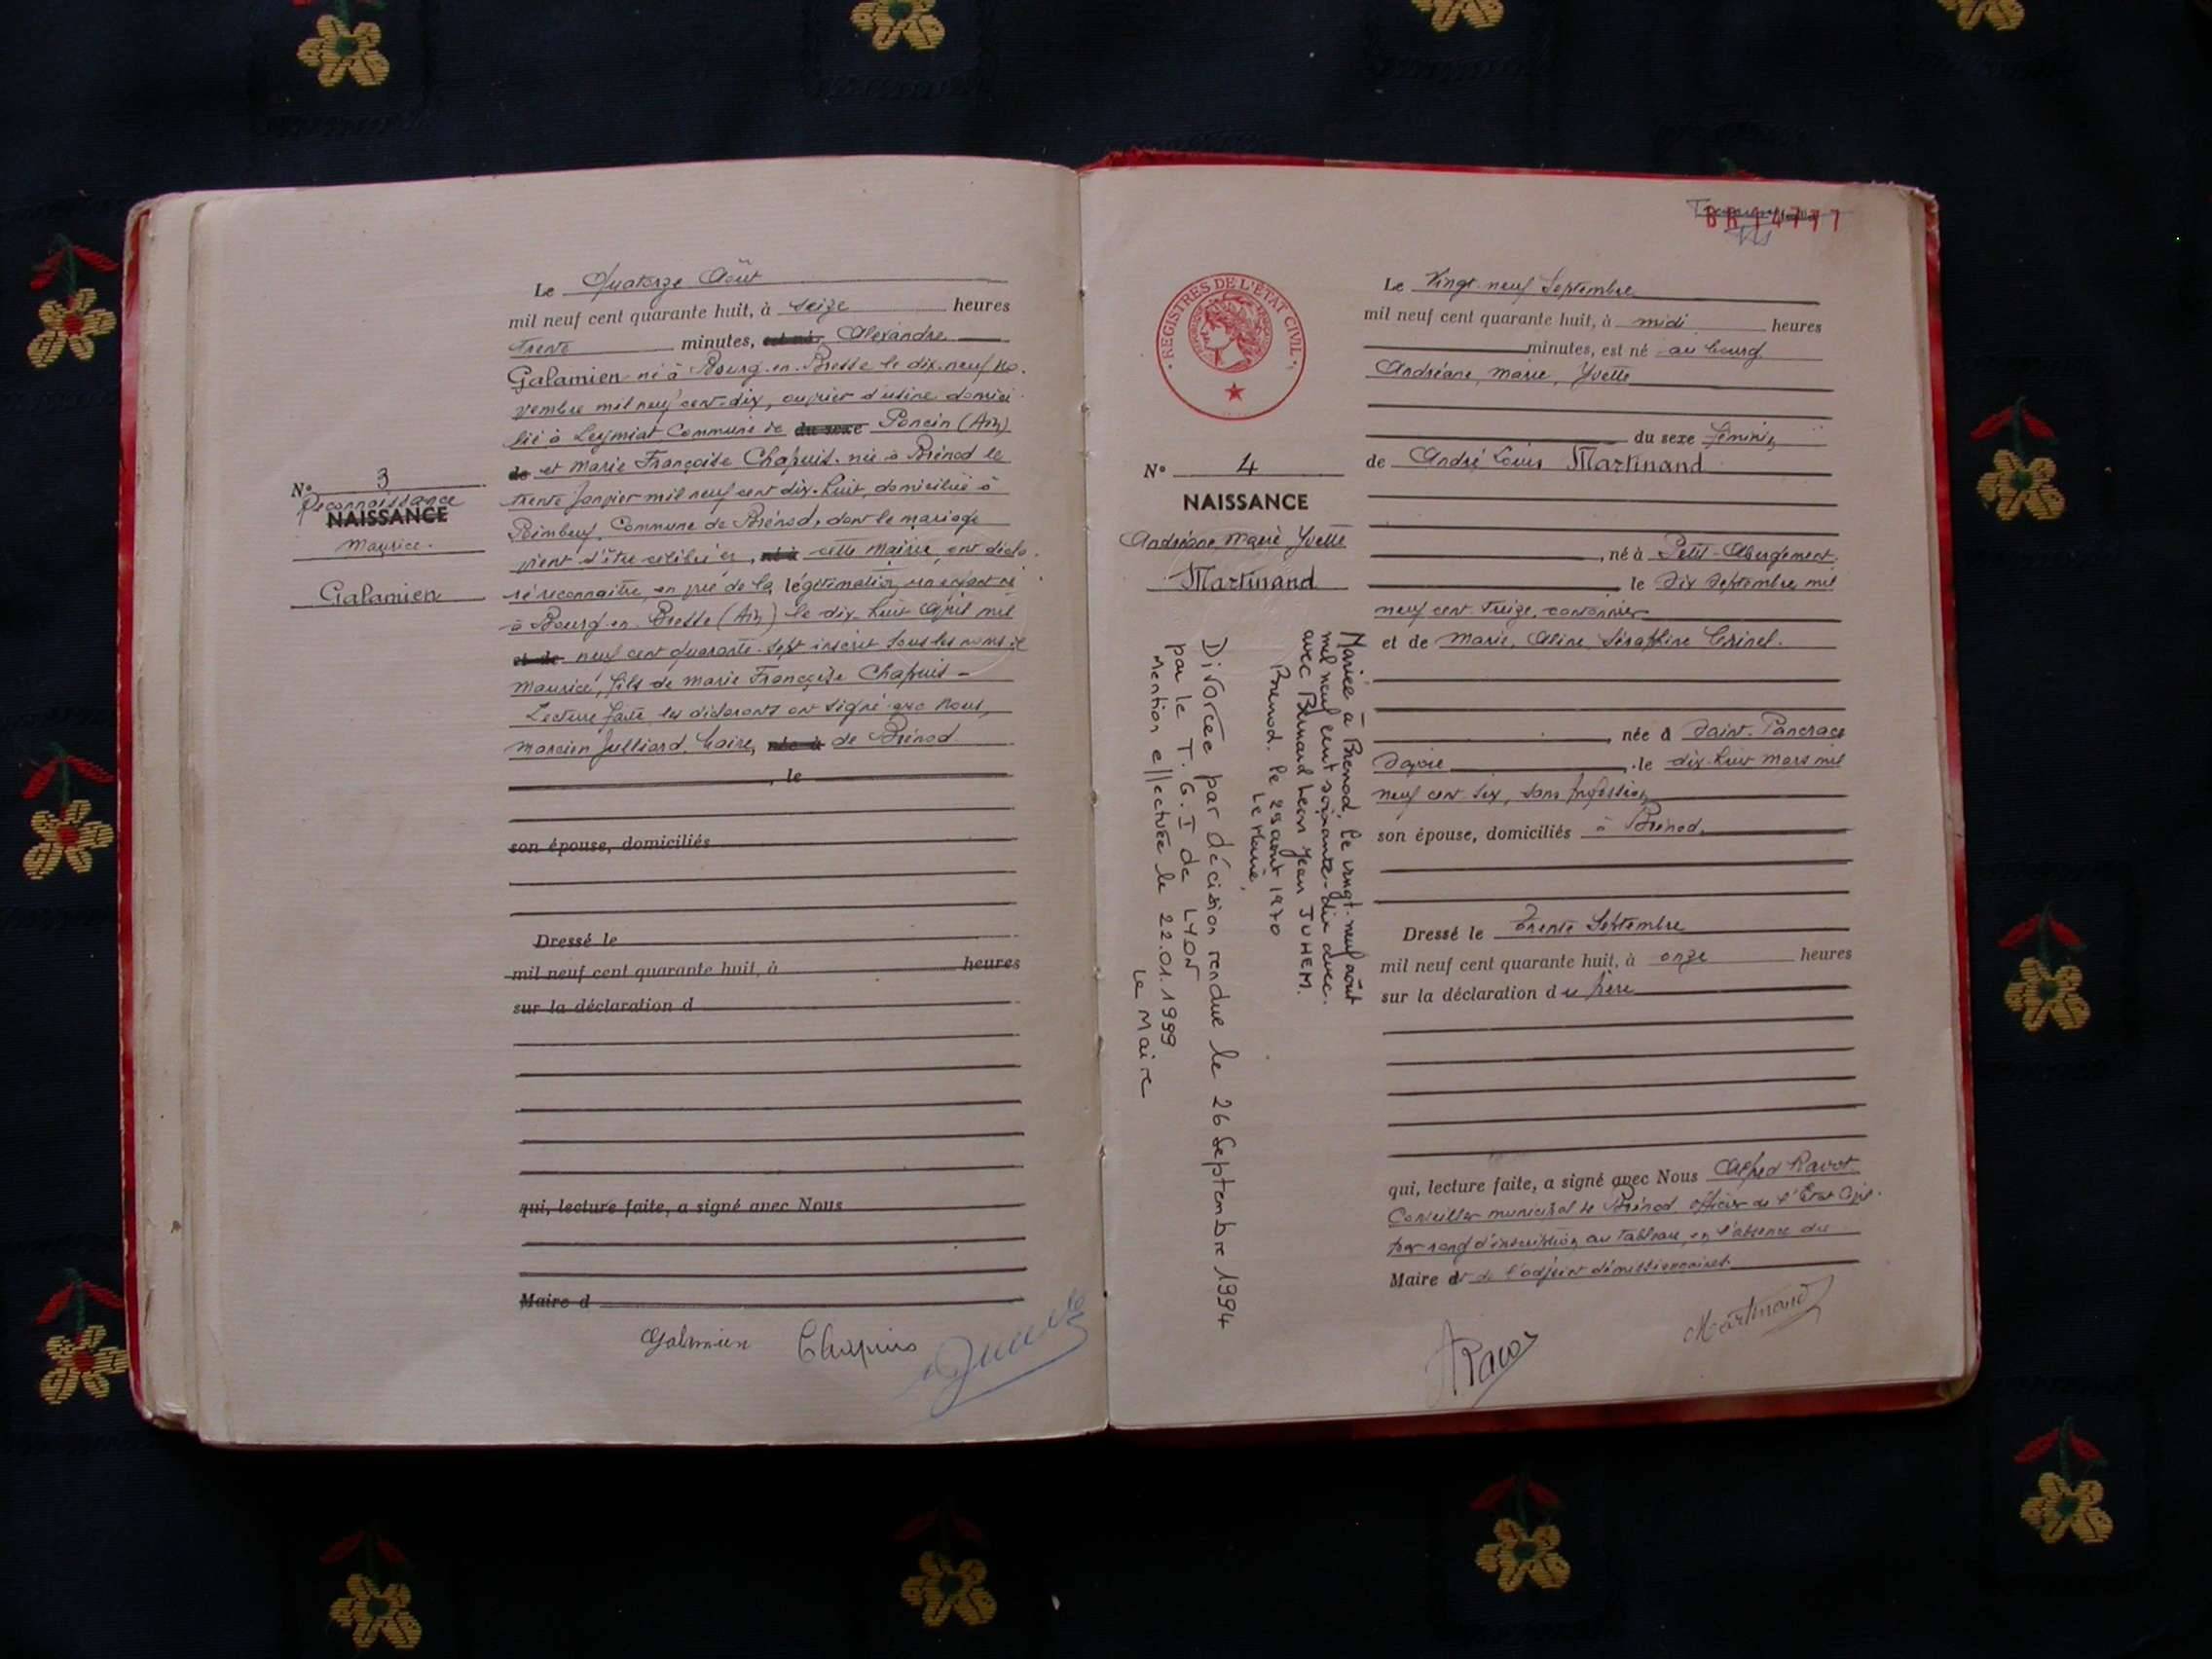 Le Quatorze Août
mil neuf cent quarante huit, à seize heures
trente minutes, est né Alexandre
Galamien né à Bourg-en-Bresse le dix-neuf no-
vembre mil neuf cent-dix, ouvrier d'usine domici-
lié à Leymiat Commune de du sexe Poncin (Ain)
de et Marie Françoise Chapuis, née à Brénod le
trente Janvier mil neuf cent dix-huit, domiciliée à
Commune de Brénod, dont le mariage
vient d'être célébré en, né à cette Mairie, ont décla-
ré reconnaître, en vue de la légitimation, un enfant né
à Bourg-en-Bresse (Ain) le dix-huit Avril mil
et de neuf cent quarante-sept inscrit sous les noms de
Maurice, fils de Marie Françoise Chapuis -
Lecture faite, les déclarants ont signé avec Nous,
Marcien Julliard, Maire, née à de Brénod
, le
son épouse, domiciliés
Dressé le
mil neuf cent quarante huit, à heures
sur la déclaration d
qui, lecture faite, a signé avec Nous
Maire d
Galamien Chapuis
N° 3
Reconnaissance
NAISSANCE
Maurice
Galamien
BR 14777
REGISTRES DE L'ÉTAT CIVIL
N° 4
NAISSANCE
Andréane, Marie Yvette
Martinand
Mariée à Brenod, le vingt-neuf août
mil neuf cent soixante-dix avec
avec Bernard Léon Jean JUHEM.
Brenod, le 29 août 1970
Le Maire,
Divorcée par décision rendue le 26 Septembre 1994
par le T.G.I de LYON
Mention effectuée le 22.01.1999
Le Maire
Le Vingt-neuf Septembre
mil neuf cent quarante huit, à midi heures
minutes, est né au bourg
Andréane, Marie, Yvette
du sexe féminin
de André Louis Martinand
, né à Petit-Abergement
le dix Septembre mil
neuf cent treize, cantonnier
et de Marie, Aline Séraphine Grinel.
, née à Saint-Pancrace
Savoie , le dix-huit Mars mil
neuf cent six, sans profession
son épouse, domiciliés à Brénod
Dressé le trente Septembre
mil neuf cent quarante huit, à onze heures
sur la déclaration du père
qui, lecture faite, a signé avec Nous Alfred Ravot
Conseiller municipal de Brénod officier de l'État Civil
par rang d'inscription au tableau, en l'absence du
Maire et de l'adjoint démissionnaires
ARavot
Martinand